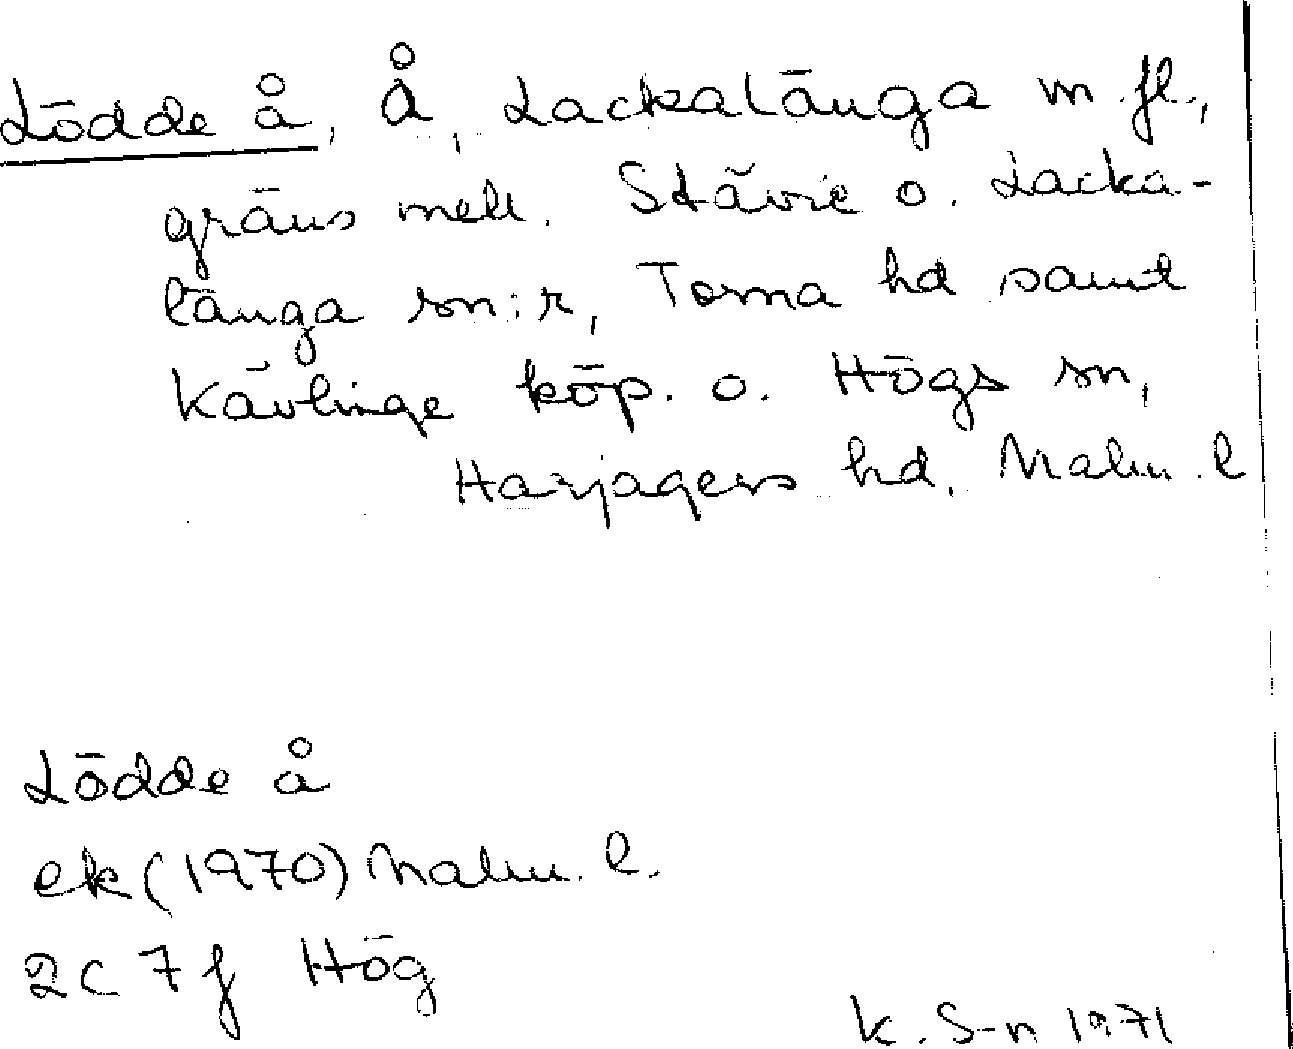 Lödde å, Å, Lackalänga m. fl.,
gräns mell. Stävie o. Lacka-
länga sn:r, Torna hd samt
Kävlinge köp. o. Högs sn,
Harjagers hd, Malm. l
Lödde å
ek (1970) Malm. l.
2C 7f Hög
K. S-n 1971